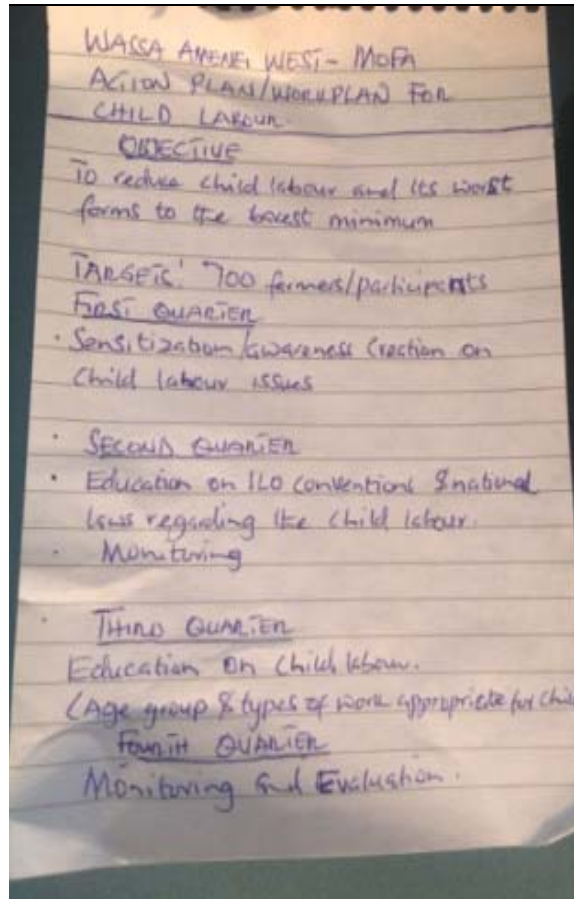 WASSA AMENFI WEST - MOFA
ACTION PLAN/WORKPLAN FOR
CHILD LABOUR.
OBJECTIVE
To reduce child labour and its worst
forms to the barest minimum
TARGETS: 700 farmers/participants
FIRST QUARTER
• Sensitization/awareness creation on
Child labour issues
• SECOND QUARTER
• Education on ILO conventions & national
laws regarding the child labour.
• Monitoring
• THIRD QUARTER
Education on child labour.
(Age group & types of work appropriate for chil
FOURTH QUARTER
Monitoring and Evaluation.